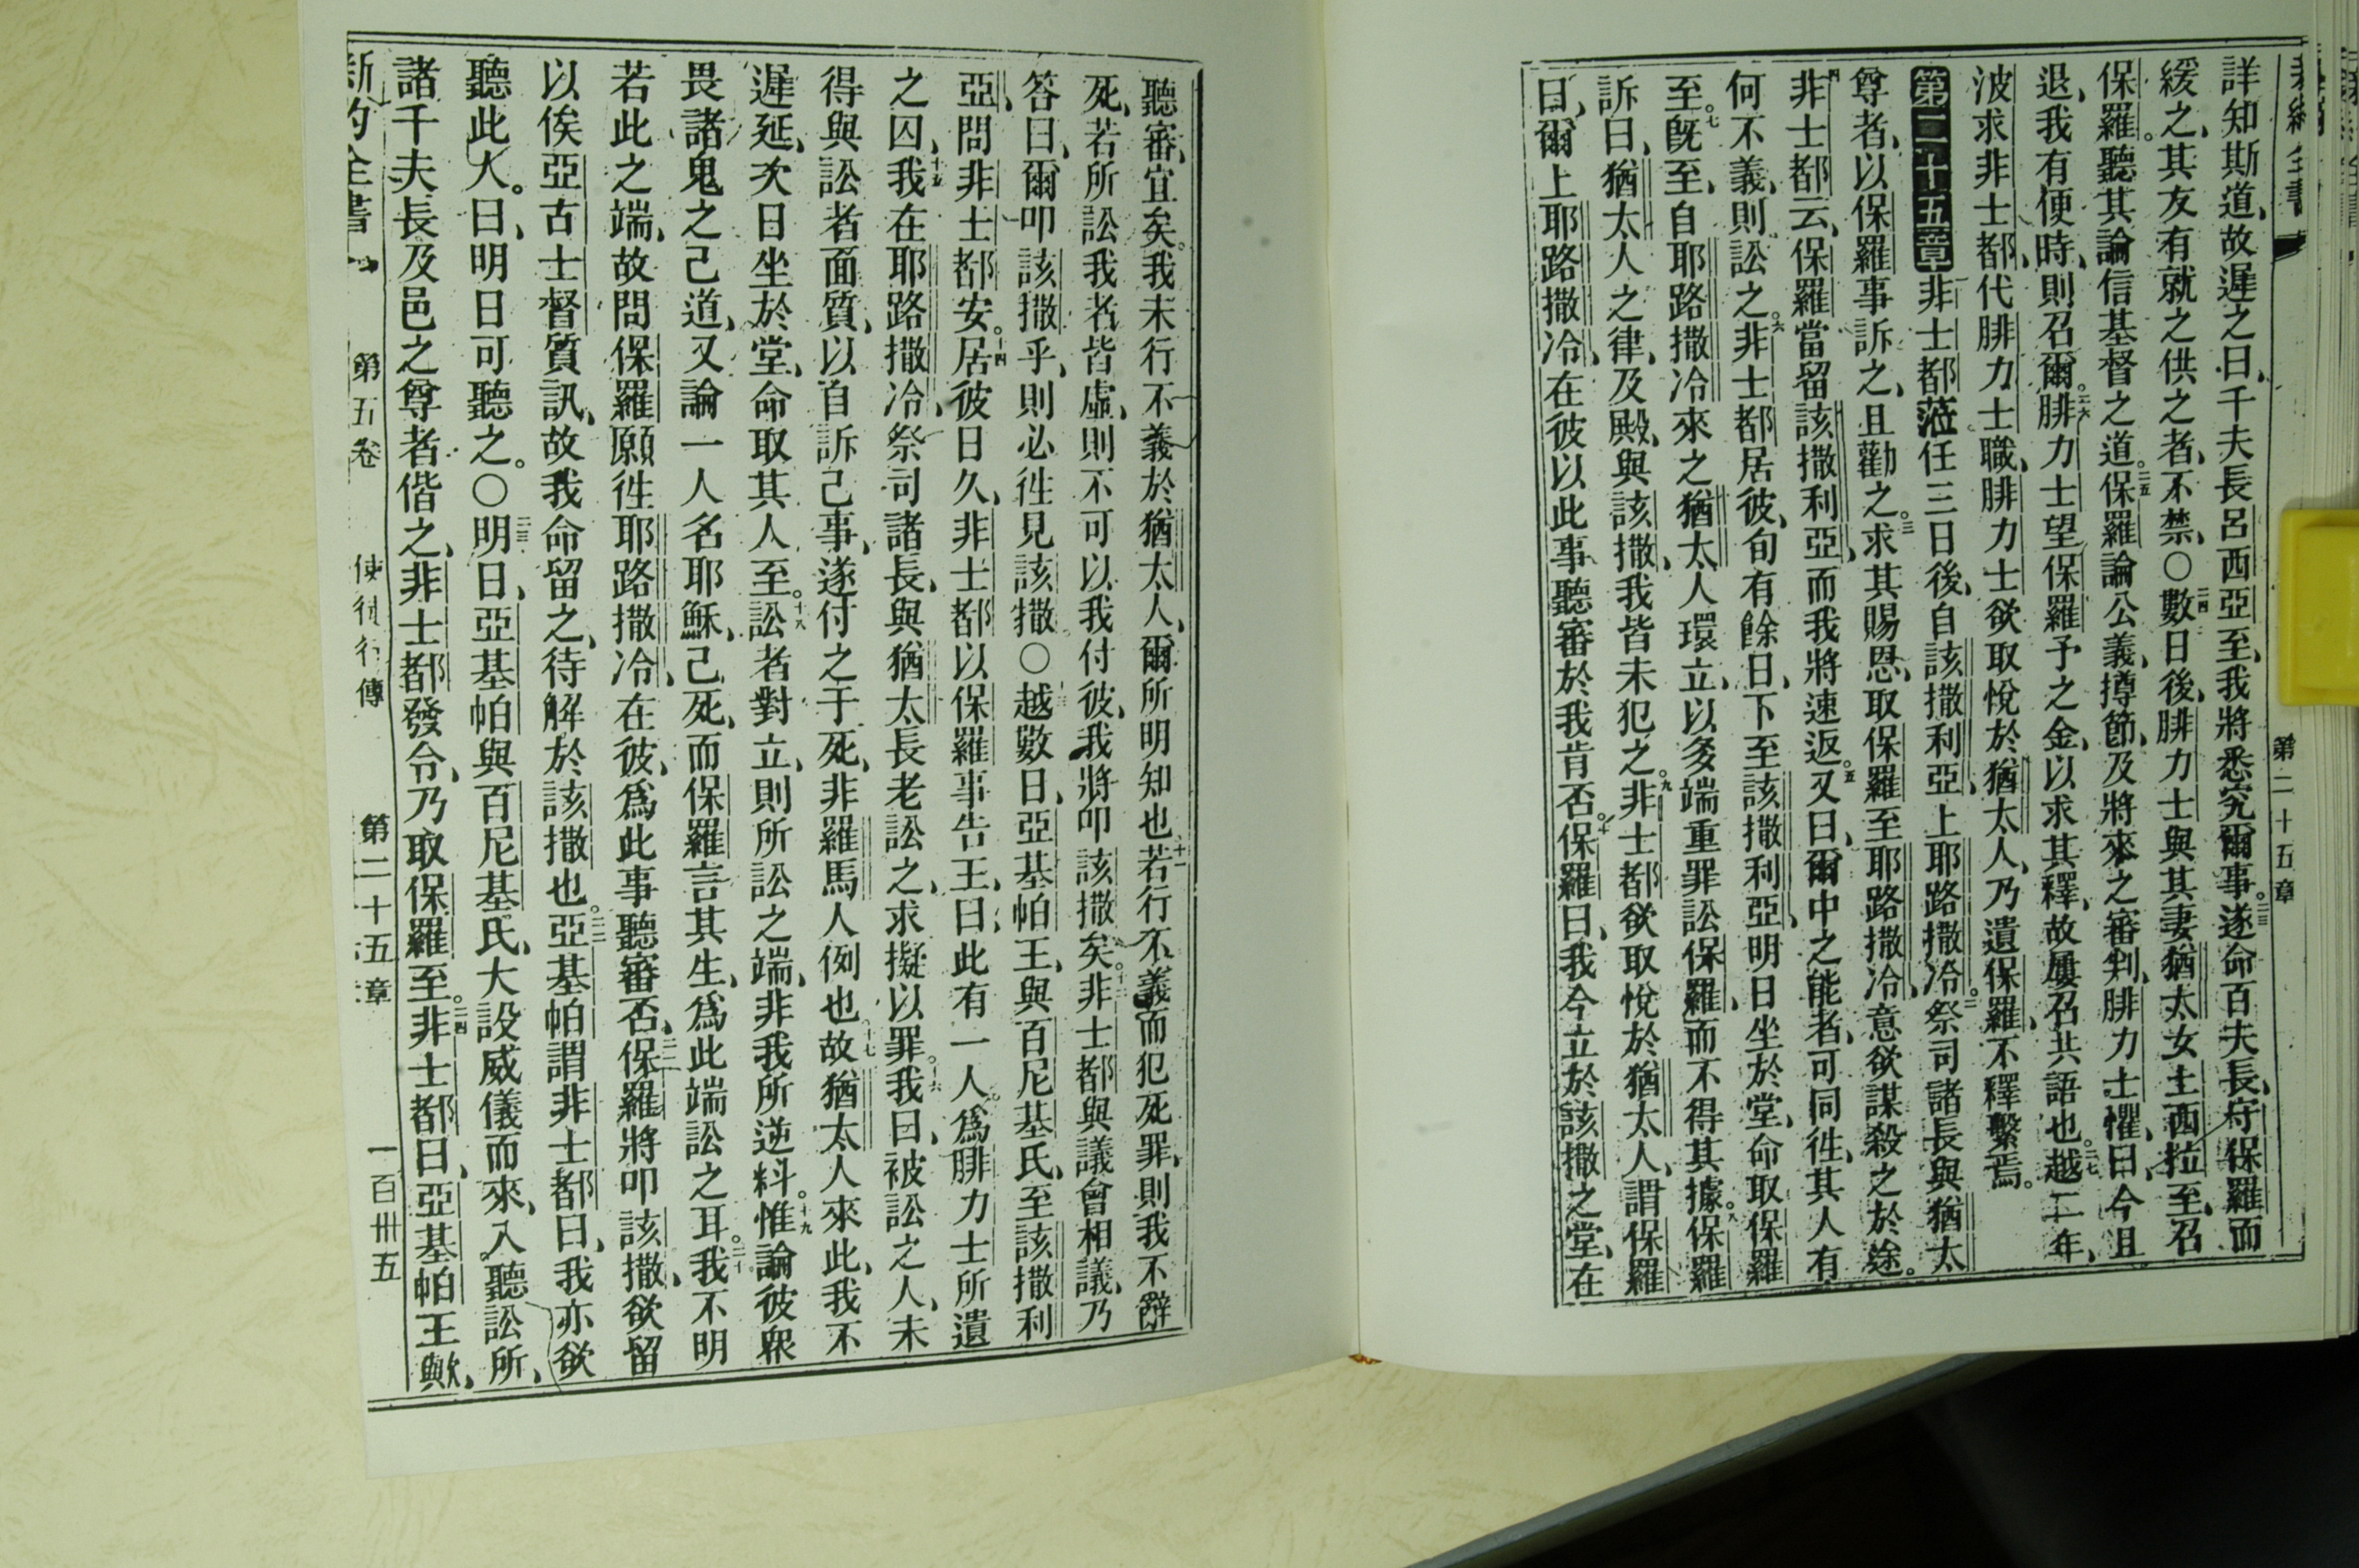 第二十五章
詳知斯道、故遲之曰、千夫長呂西亞至、我將悉究爾事。二三遂命百夫長、守保羅而
緩之、其友有就之供之者、不禁、○二四數日後、腓力士與其妻猶太女土西拉至、召
保羅。聽其論信基督之道。二五保羅論公義、撙節、及將來之審判、腓力士懼、曰、今且
退、我有便時、則召爾。二六腓力士望保羅予之金、以求其釋、故屢召共語也。二七越二年、
波求非士都、代腓力士職、腓力士欲取悅於猶太人、乃遺保羅、不釋繫焉。
第二十五章 非士都蒞任三日後、自該撒利亞、上耶路撒冷。二祭司諸長與猶太
尊者、以保羅事訴之、且勸之。三求其賜恩、取保羅至耶路撒冷、意欲謀殺之於途。
四非士都云、保羅當留該撒利亞、而我將速返。五又曰、爾中之能者、可同往、其人有
何不義、則訟之。六非士都居彼、旬有餘日、下至該撒利亞、明日坐於堂、命取保羅
至。七旣至、自耶路撒冷來之猶太人環立、以多端重罪訟保羅、而不得其據。八保羅
訴曰、猶太人之律、及殿、與該撒、我皆未犯之。九非士都欲取悅於猶太人、謂保羅
曰、爾上耶路撒冷、在彼以此事聽審於我肯否。十保羅曰、我今立於該撒之堂、在
聽審、宜矣。我未行不義於猶太人、爾所明知也、十一若行不義而犯死罪、則我不辭
死、若所訟我者皆虛、則不可以我付彼、我將叩該撒矣。十二非士都與議會相議、乃
答曰、爾叩該撒乎、則必徃見該撒○十三越數日、亞基帕王、與百尼基氏、至該撒利
亞、問非士都安。十四居彼日久、非士都以保羅事告王、曰、此有一人。爲腓力士所遺
之囚、十五我在耶路撒冷、祭司諸長、與猶太長老訟之、求擬以罪。十六我曰、被訟之人、未
得與訟者面質、以自訴己事、遂付之于死、非羅馬人例也、十七故猶太人來此、我不
遲延、次日坐於堂、命取其人至。十八訟者對立、則所訟之端、非我所逆料。十九惟論彼衆
畏諸鬼之己道、又論一人名耶穌、已死、而保羅言其生、爲此端訟之耳。二十我不明
若此之端、故問保羅願徃耶路撒冷、在彼、爲此事聽審否、二一保羅將叩該撒、欲留
以俟亞古士督質訊、故我命留之、待解於該撒也。二二亞基帕謂非士都曰、我亦欲
聽此人。曰、明日可聽之。○二三明日、亞基帕與百尼基氏、大設威儀而來、入聽訟所、
諸千夫長及邑之尊者偕之、非士都發令、乃取保羅至。二四非士都曰、亞基帕王歟、
新約全書 第五卷 使徒行傳 第二十五章 一百卅五